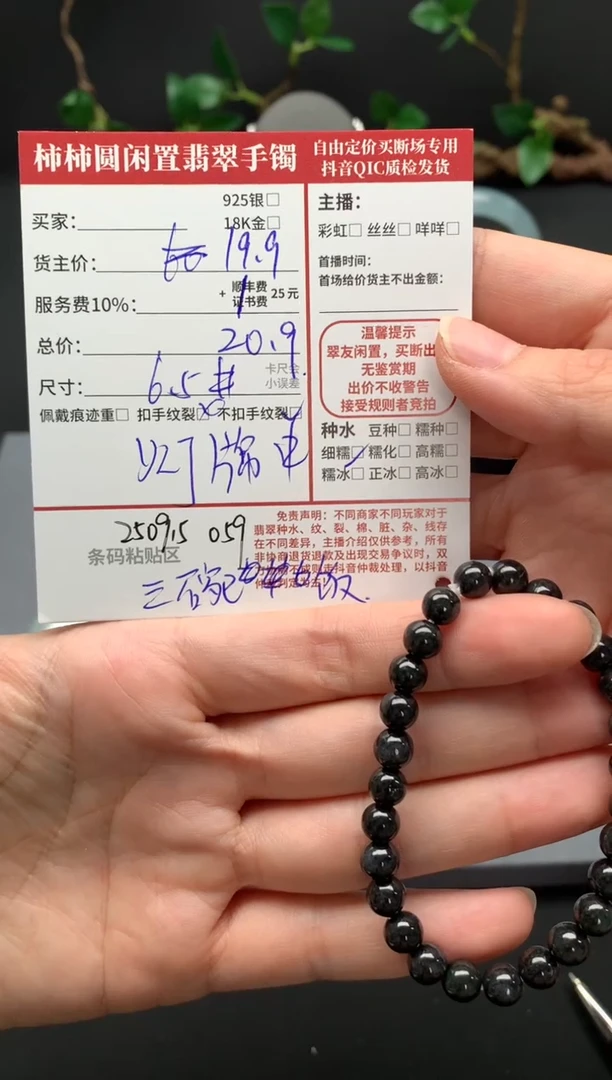 柿柿圆闲置翡翠手镯
自由定价买断场专用
抖音QIC质检发货
925银□
18K金□
买家：
货主价： 19.9
服务费10%： 1 + 顺丰费 证书费 25元
总价： 20.9
尺寸： 6.5 卡尺会 小误差
佩戴痕迹重□ 扣手纹裂□ 不扣手纹裂□
主播：
彩虹□ 丝丝□ 咩咩□
首播时间：
首场给价货主不出金额：
温馨提示
翠友闲置，买断出
无鉴赏期
出价不收警告
接受规则者竞拍
种水 豆种□ 糯种□
细糯□ 糯化□ 高糯□
糯冰□ 正冰□ 高冰□
250915 059
条码粘贴区
免责声明：不同商家不同玩家对于
翡翠种水、纹、裂、棉、脏、杂、线存
在不同差异，主播介绍仅供参考，所有
非协商退货退款及出现交易争议时，双
则走抖音仲裁处理，以抖音